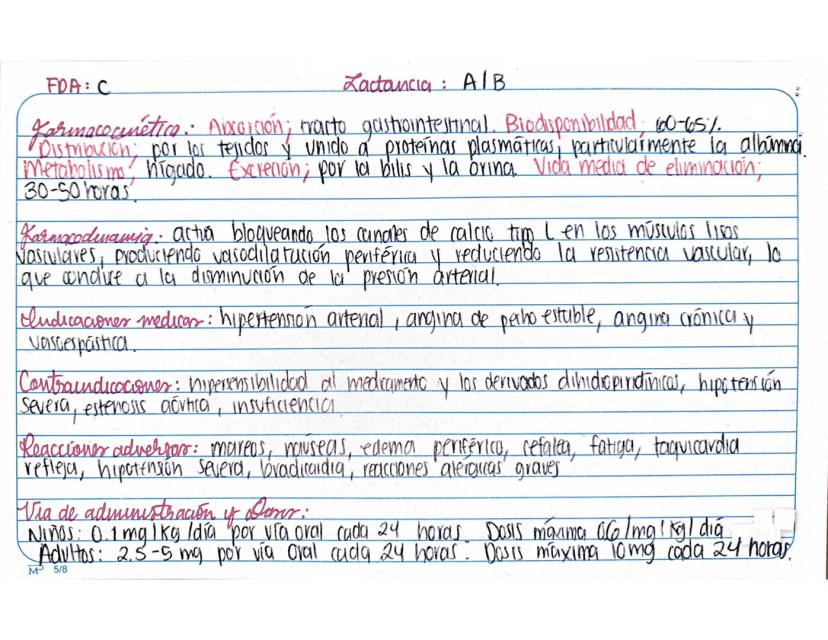 FDA: C Lactancia: A/B
Farmacocinética: Absorción; tracto gastrointestinal. Biodisponibilidad 60-65%.
Distribución; por los tejidos y unido a proteínas plasmáticas, particularmente la albúmina.
Metabolismo; hígado. Excreción; por la bilis y la orina. Vida media de eliminación;
30-50 horas.
Farmacodinamia: actúa bloqueando los canales de calcio tipo L en los músculos lisos
vasculares, produciendo vasodilatación periférica y reduciendo la resistencia vascular, lo
que conduce a la disminución de la presión arterial.
Indicaciones médicas: hipertensión arterial, angina de pecho estable, angina crónica y
vasoespástica.
Contraindicaciones: hipersensibilidad al medicamento y los derivados dihidropiridínicos, hipotensión
severa, estenosis aórtica, insuficiencia
Reacciones adversas: mareos, náuseas, edema periférico, cefalea, fatiga, taquicardia
refleja, hipotensión severa, bradicardia, reacciones alérgicas graves
Vía de administración y Dosis:
Niños: 0.1 mg/kg/día por vía oral cada 24 horas. Dosis máxima 0.6/mg/kg/día
Adultos: 2.5-5 mg por vía Oral cada 24 horas. Dosis máxima 10mg cada 24 horas.
M 5/8